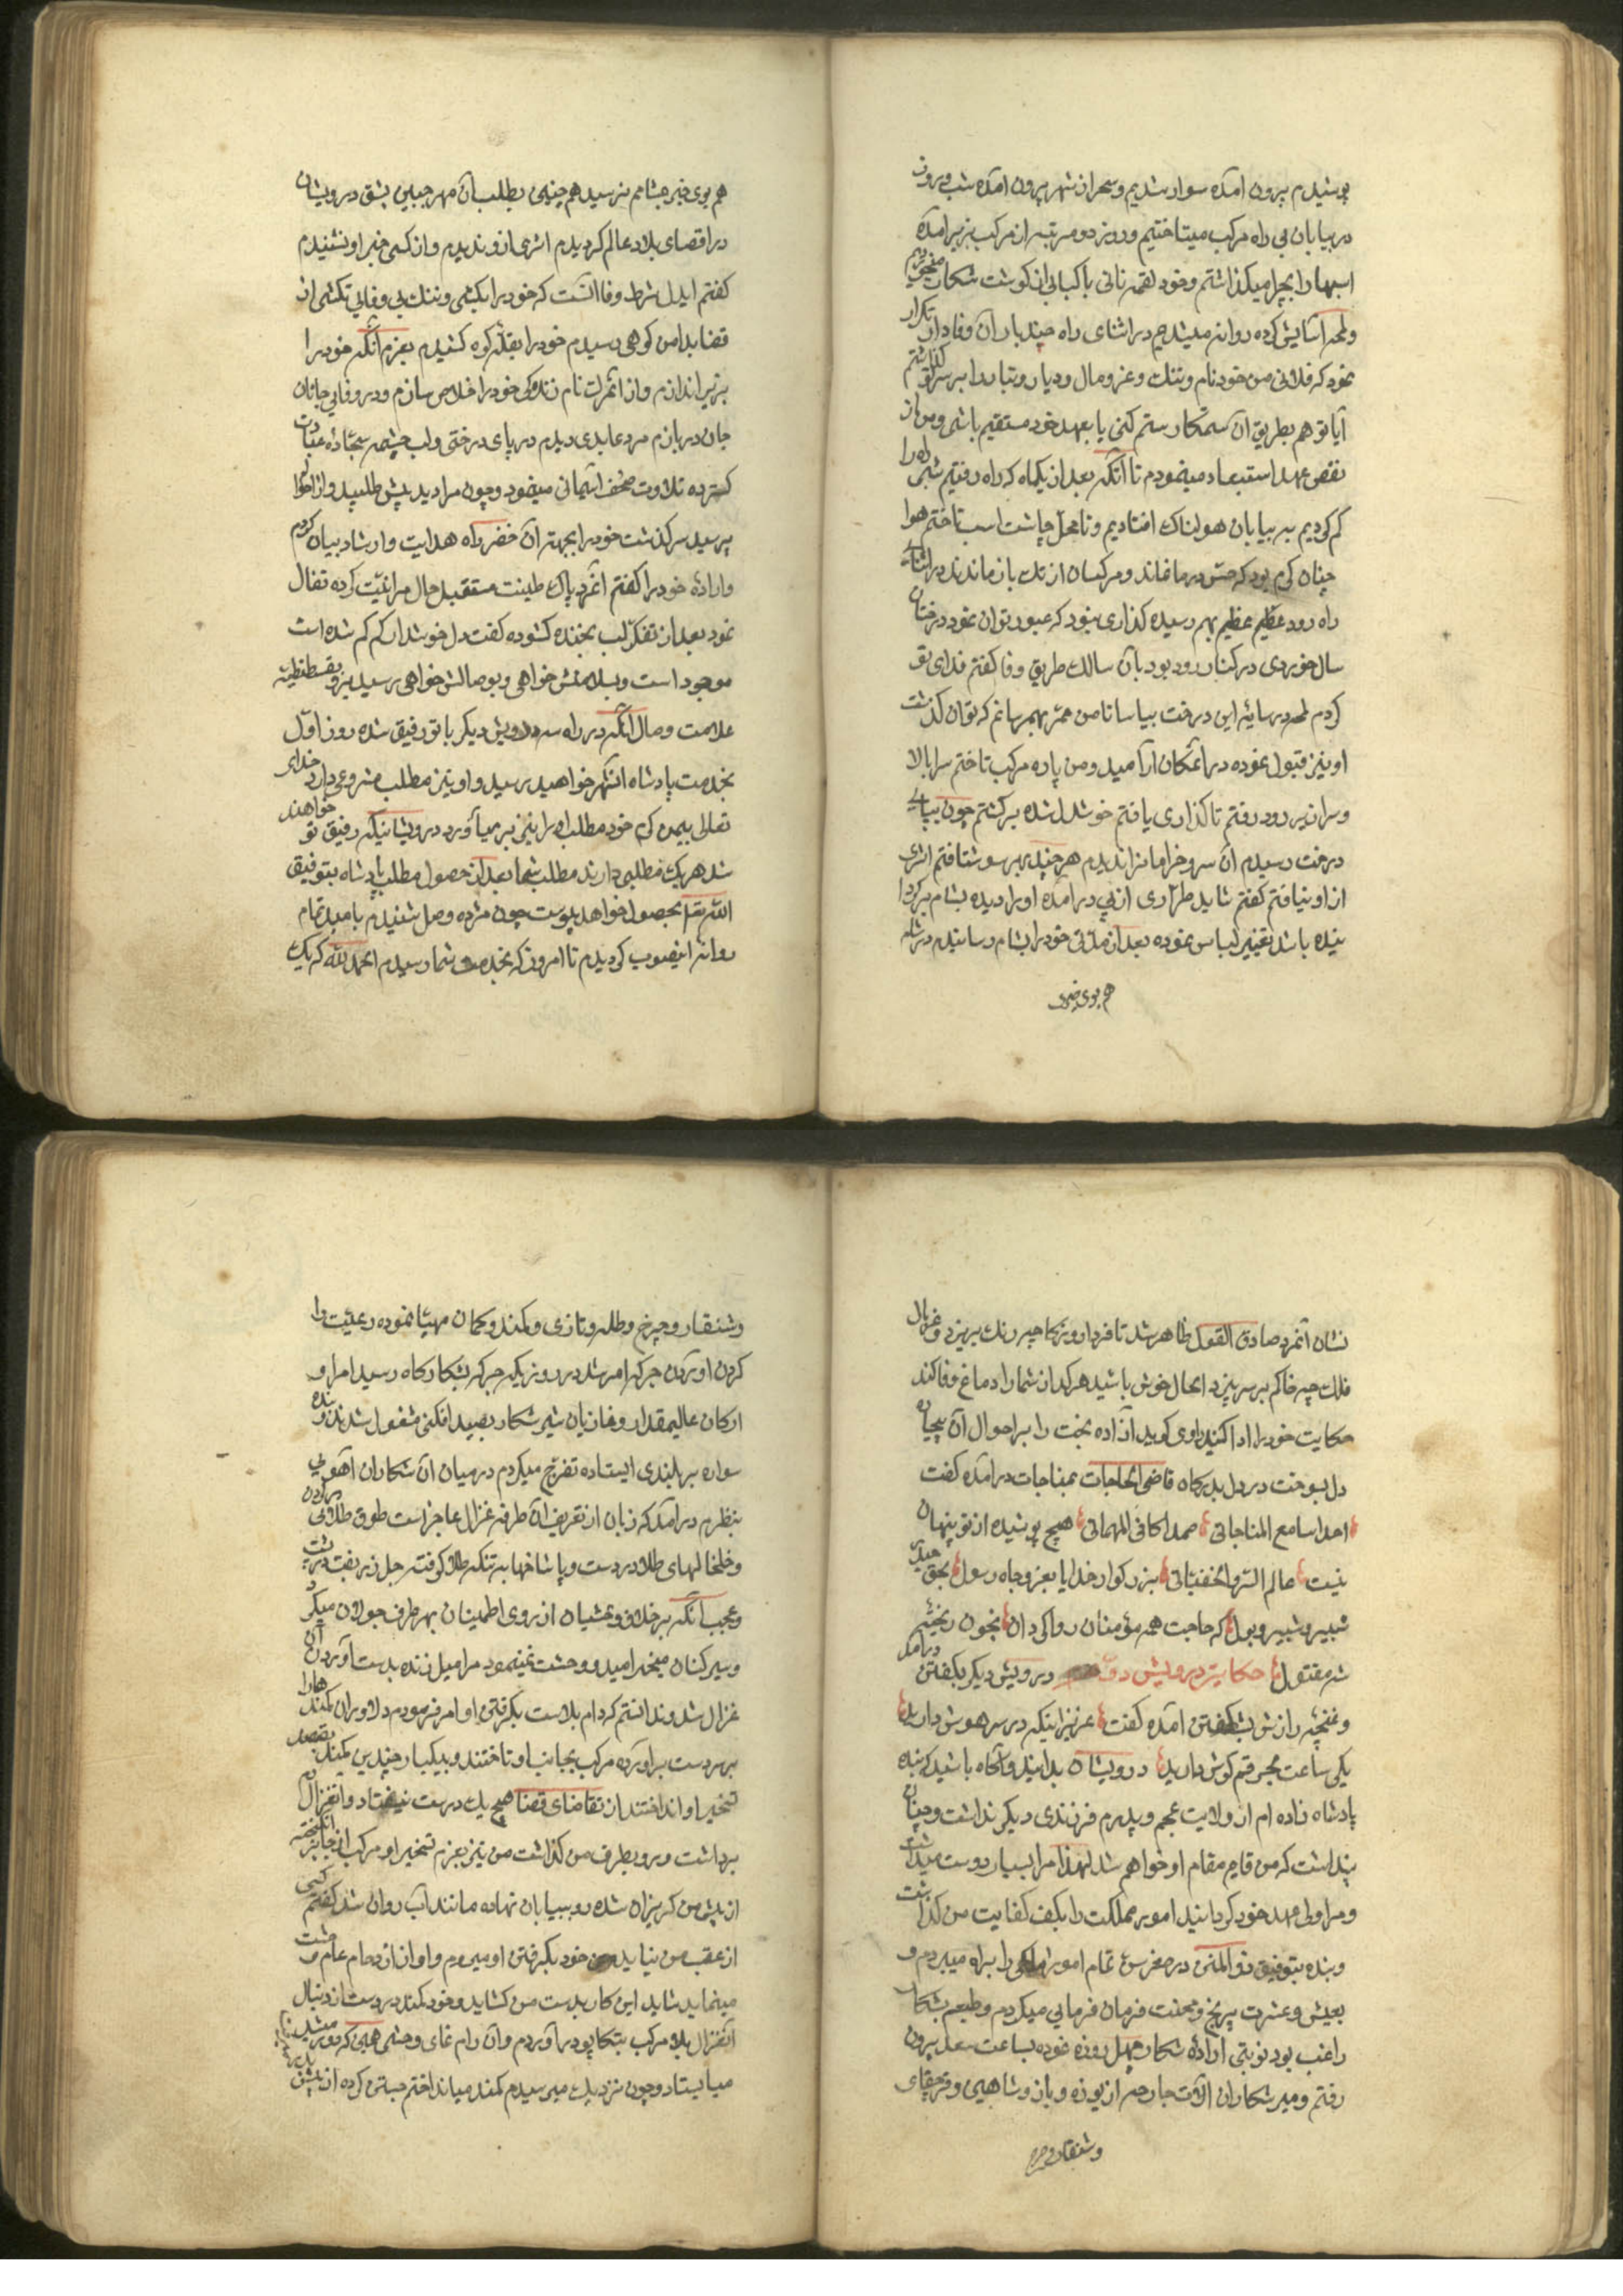 پوشیدم بیرون آمده سوار شدیم و سحر از شهر بیرون آمده شب و روز
در بیابان بی راه مرکب میتاختیم و روز دو مرتبه از مرکب بزیر آمده
اسبها را بچرا میکذاشتم و خود لقمه نانی با کبابی از کوشت شکار میخوردیم
و لمحه آسایش کرده روانه میشدیم در اثنای راه چند بار آن وفادار تکرار
نمود که فلانی من خود نام و ننک و عز و مال و دیار و تبار را بر سر تو کذاشتم
آیا تو هم بطریق آن ستمکار ستم کنی یا بعهد خود مستقیم باشی و من از
نقض عهد استبعاد مینمودم تا آنکه بعد از یکماه که راه رفتیم شبی راه را
کم کردیم به بیابان هولناک افتادیم و تا محل چاشت اسب تاختم هوا
چنان کرم بود که حس در ما نماند و مرکبان از تک باز ماندند در اثنای
راه رود عظیم عظیم بهم رسیده کذاری نبود که عبور توان نمود درختان
سال خوردی در کنار رود بود بآن سالک طریق وفا کفتم فدای تو
کردم لمحه در سایه این درخت بیاسا تا من ممری بهم رسانم که توان کذشت
او نیز قبول نموده در آنمکان آرامید و من پاره مرکب تاختم سر بالا
و سرازیر رود رفتم تا کذاری یافتم خوشدل شده برکشتم چون بپای
درخت رسیدم آن سرو خرامانرا ندیدم هر چند بهر سو شتافتم اثری
از او نیافتم کفتم شاید طراری از پی در آمده او را دیده بشام برکردا
نیده باشد تغییر لباس نموده بعد از مدتی خود را بشام رسانیدم در شام
هم بوی خبری
هم بوی خبر بمشامم نرسید هم چنین بطلب آن مهر جبین بشق درویشان
در اقصای بلاد عالم کردیدم اثری از و ندیدم و از کسی خبر او نشنیدم
کفتم ایدل شرط وفا آنست که خود را بکشی و ننک بی وفایی نکشی از
قضا بدامن کوهی رسیدم خود را بقله کوه کشیدم بعزم آنکه خود را
بزیر اندازم و از نام زندکی خود را خلاص سازم و در وفایی جانان
جان در بازم مرد عابدی دیدم در پای درختی و لب چشمه سجاده عبادت
کسترده تلاوت صحف آسمانی مینمود و چون مرا دید پیش طلبید و از احوالم
پرسید سرکذشت خود را بجهته آن خضر راه هدایت و ارشاد بیان کردم
و اراده خود را کفتم آنمرد پاک طینت مستقبل حال مرا نیت کرده تفال
نمود بعد از تفکر لب بخنده کشوده کفت دل خوشدار کم کم شده است
موجود است و بسلامتش خواهی و بوصالش خواهی رسید برو بقسطنطنیه
علامت وصال آنکه در راه سه درویش دیکر با تو رفیق شده روز اول
بخدمت پادشاه آنشهر خواهید رسید و او نیز مطلب مشروعی دارد خدای
تعالی بیمن کرم خود مطلب او را نیز بر میآورد درویشانیکه رفیق تو خواهند
شد هر یک مطلبی دارند مطلب شما بعد از حصول مطلب پادشاه بتوفیق
الله تعا بحصول خواهد پیوست چون مژده وصل شنیدم بامید تمام
روانه اینصوب کردیدم تا امروز که بخدمت شما رسیدم الحمد لله که یک
نشان آنمرد صادق القول ظاهر شد تا فردا روزکار چه رنک بریزد و غربال
فلک چه خاکم بر سر بیزد الحال خوش باشید هر کدام از شما را دماغ وفا کند
حکایت خود را ادا کنید راوی کوید آزاده بخت را بر احوال آن بیچاره
دل بسوخت در دل بدرکاه قاضی الحاجات بمناجات در آمده کفت
احدا سامع المناجاتی صمدا کافی المهماتی هیچ پوشیده از تو پنهان
نیست عالم السر و الخفیاتی بزرکوار خدایا بعز و جاه رسول بحق حیدر
شبیر و شبر و بتول که حاجت همه مؤمنان روا کردان بخون ریخته
شه مقتول حکایت درویش دوم درویش دیکر بکفتن در آمد
و غنچه رازش بشکفتن آمده کفت عزیزانیکه در سر هوش دارید
یکی ساعت بحرفم کوش دارید درویشان بدانید و آکاه باشید که بنده
پادشاه زاده ام از ولایت عجم و پدرم فرزندی دیکر نداشت و چنان
پنداشت که من قایم مقام او خواهم شد لهذا مرا بسیار دوست میداشت
و مرا ولی عهد خود کردانید امور مملکت را بکف کفایت من کذاشت
و بنده بتوفیق ذو المنن در صغر سن تمام امور ملکی را براه میبردم و
بعیش و عشرت بی رنج و محنت فرمان فرمایی میکردم و طبعم بشکار
راغب بود نوبتی اراده شکار چهل روزه نموده بساعت سعد بیرون
رفتم و میر شکاران آلات جارحه از یوزه و باز و شاهین و قرچقای
و شنقار و چرخ
و شنقار و چرخ و طله و تازی و کمند و کمان مهیا نموده رعیت را
کردن آوردن جرکه امر شد در روزیکه جرکه بشکارکاه رسید امرا و
ارکان عالیمقدار و غازیان شیر شکار بصید افکنی مشغول شدند و بنده
سواره بر بلندی ایستاده تفرج میکردم در میان آن شکاران آهویی
بنظرم در آمد که زبان از تعریف آن طرفه غزال عاجز است طوق طلایی در کردن
و خلخالهای طلا در دست و پا شاخها به تنکه طلا کوفته جل زربفت در پشت
و عجب آنکه بر خلاف وحشیان از روی اطمینان بهر طرف جولان میکرد
و سیر کنان میخرامید و وحشت نمینمود مرا میل زنده بدست آوردن آن
غزال شد و ندانستم که دام بلاست بکرفتن او امر فرمودم دلاوران کمند ها را
بر سر دست بر آورده مرکب بجانب او تاختند و بیکبار چندین کمند بقصد
تسخیر او انداختند از تقاضای قضا هیچ یک درست نیفتاد و آنغزال رم
برداشت و رو بطرف من کذاشت من نیز بعزم تسخیر او مرکب از جا بر انکیخته
از پیش من کریزان شده رو ببیابان نهاده مانند آب روان شد کفتم کسی
از عقب من نیاید من خود بکرفتن او میروم و او از ازدحام عام وحشت
مینماید شاید این کار بدست من کشاید و خود کمند در دست از دنبال
آنغزال بلا مرکب بتکاپو در آوردم و آن رام نمای وحشی همین که دور میشد
میایستاد و چون نزدیک میرسیدم کمند میانداختم جستن کرده از پیش